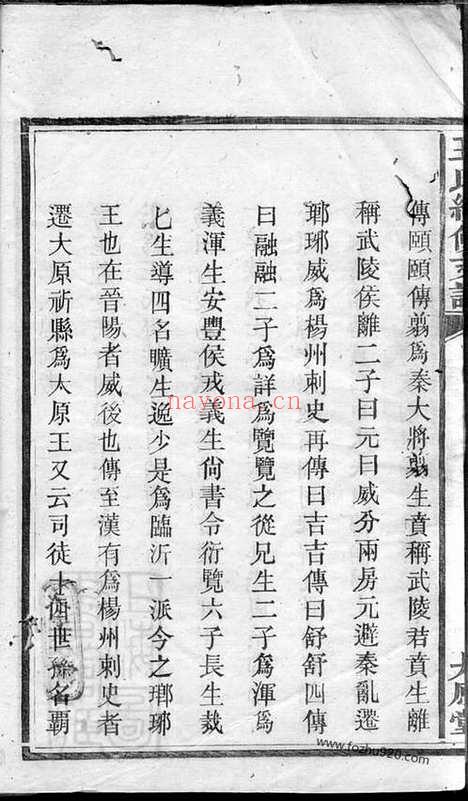 王氏續修支譜
太原堂
傳頤頤傳翦爲秦大將翦生賁稱武陵君賁生離
稱武陵侯離二子曰元曰威分兩房元避秦亂遷
瑯琊威爲楊州刺史再傳曰吉吉傳曰舒舒四傳
曰融融二子爲詳爲覽覽之從兄生二子爲渾爲
義渾生安豐侯戎義生尙書令衍覽六子長生裁
七生導四名曠生逸少是爲臨沂一派今之瑯琊
王也在晉陽者威後也傳至漢有爲楊州刺史者
遷大原祈縣爲大原王又云司徒十四世孫名霸
nayona.cn
www.fozhu920.com